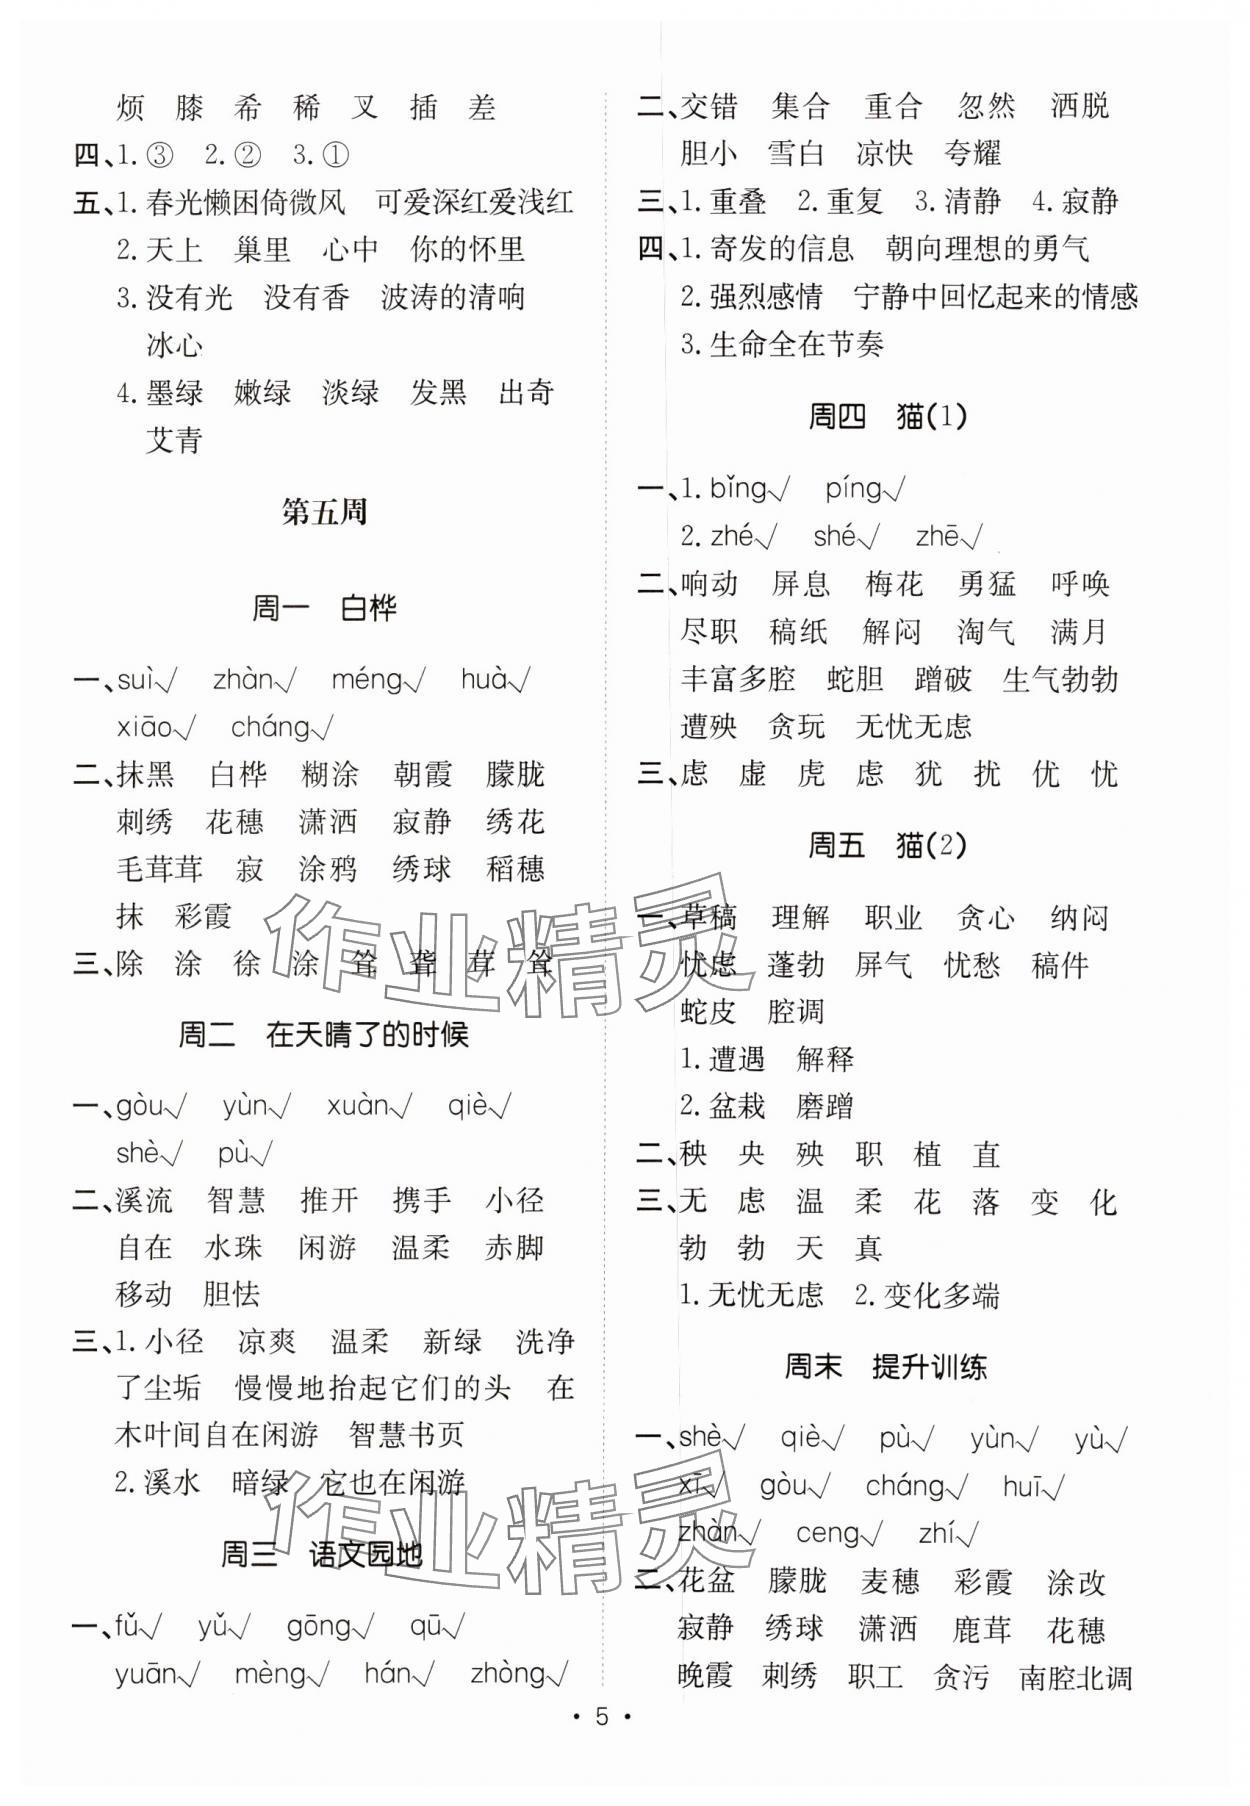 烦 膝 希 稀 叉 插 差
四、1.③ 2.② 3.①
五、1.春光懒困倚微风 可爱深红爱浅红
2.天上 巢里 心中 你的怀里
3.没有光 没有香 波涛的清响
冰心
4.墨绿 嫩绿 淡绿 发黑 出奇
艾青
第五周
周一 白桦
一、suì√ zhàn√ méng√ huà√
xiāo√ cháng√
二、抹黑 白桦 糊涂 朝霞 朦胧
刺绣 花穗 潇洒 寂静 绣花
毛茸茸 寂 涂鸦 绣球 稻穗
抹 彩霞
三、除 涂 徐 涂 耸 聋 茸 耸
周二 在天晴了的时候
一、gòu√ yùn√ xuàn√ qiè√
shè√ pù√
二、溪流 智慧 推开 携手 小径
自在 水珠 闲游 温柔 赤脚
移动 胆怯
三、1.小径 凉爽 温柔 新绿 洗净
了尘垢 慢慢地抬起它们的头 在
木叶间自在闲游 智慧书页
2.溪水 暗绿 它也在闲游
周三 语文园地
一、fǔ√ yǔ√ gōng√ qū√
yuān√ mèng√ hán√ zhòng√
二、交错 集合 重合 忽然 洒脱
胆小 雪白 凉快 夸耀
三、1.重叠 2.重复 3.清静 4.寂静
四、1.寄发的信息 朝向理想的勇气
2.强烈感情 宁静中回忆起来的情感
3.生命全在节奏
周四 猫(1)
一、1.bǐng√ píng√
2.zhé√ shé√ zhē√
二、响动 屏息 梅花 勇猛 呼唤
尽职 稿纸 解闷 淘气 满月
丰富多腔 蛇胆 蹭破 生气勃勃
遭殃 贪玩 无忧无虑
三、虑 虚 虎 虑 犹 扰 优 忧
周五 猫(2)
一、草稿 理解 职业 贪心 纳闷
忧虑 蓬勃 屏气 忧愁 稿件
蛇皮 腔调
1.遭遇 解释
2.盆栽 磨蹭
二、秧 央 殃 职 植 直
三、无 虑 温 柔 花 落 变 化
勃 勃 天 真
1.无忧无虑 2.变化多端
周末 提升训练
一、shè√ qiè√ pù√ yùn√ yù√
xī√ gòu√ cháng√ huī√
zhàn√ ceng√ zhí√
二、花盆 朦胧 麦穗 彩霞 涂改
寂静 绣球 潇洒 鹿茸 花穗
晚霞 刺绣 职工 贪污 南腔北调
• 5 •
作业精灵
作业精灵